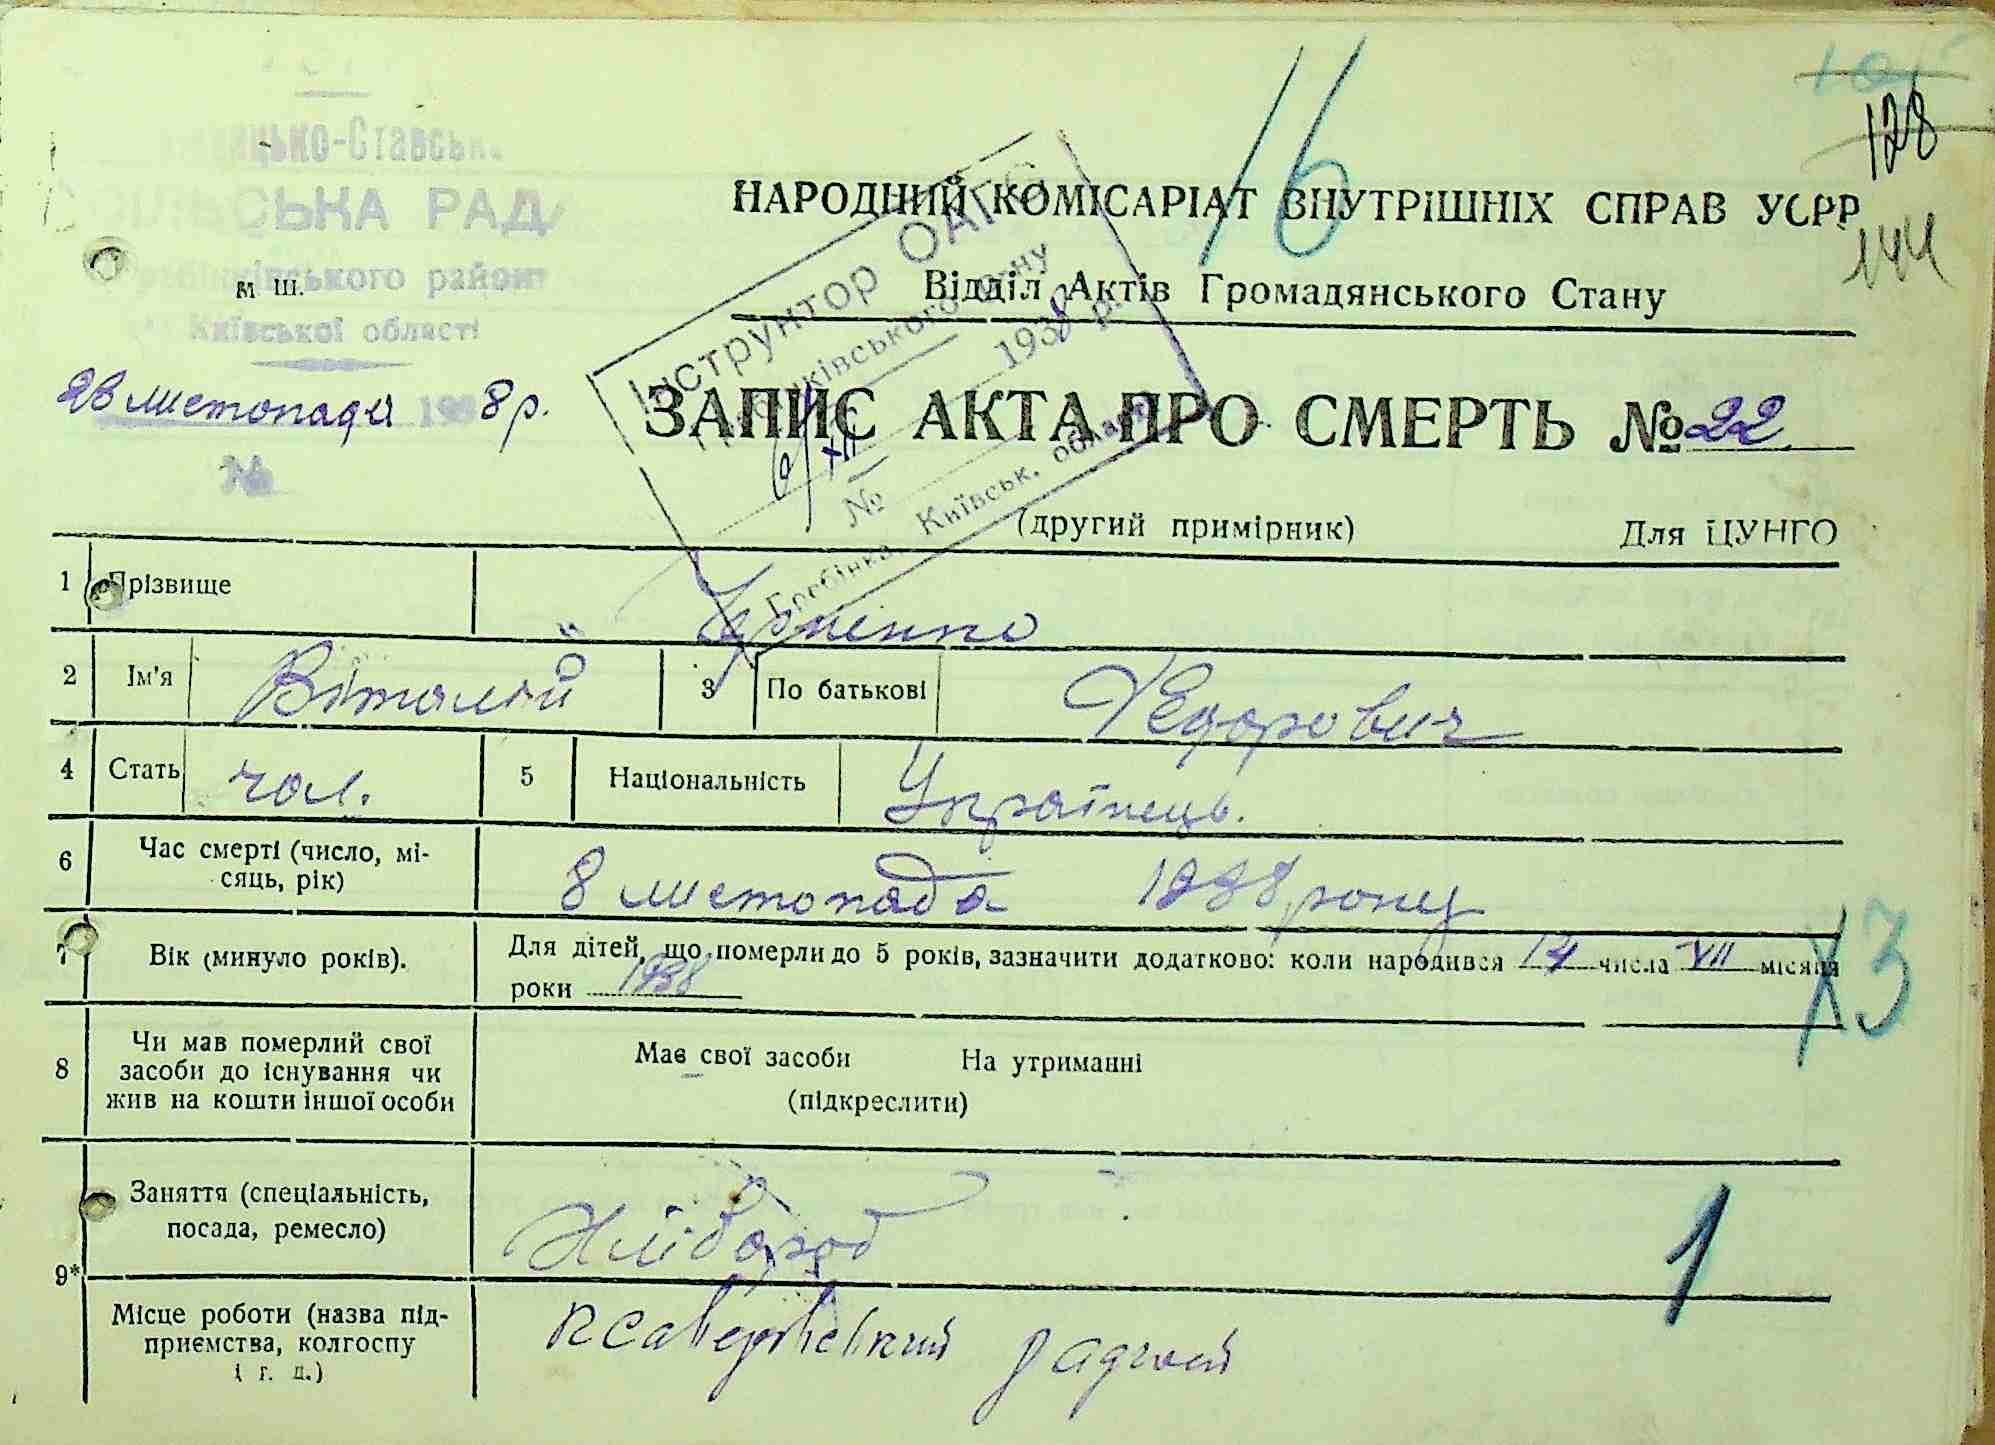 128
144
16
цько-Ставськ
СІЛЬСЬКА РАДА
ківського район
Київської області
м ш.
НАРОДНИЙ КОМІСАРІАТ ВНУТРІШНІХ СПРАВ УСРР
Відділ Актів Громадянського Стану
Інструктор ОАГС
ківського р-ну
1938 р.
6/XII
№
Гребінка, Київськ. області
28 листопада 1938р.
№
ЗАПИС АКТА ПРО СМЕРТЬ № 22
(другий примірник)
Для ЦУНГО
1 Прізвище
2 Ім'я Віталій 3 По батькові Федорович
4 Стать чол. 5 Національність Українець.
6 Час смерті (число, мі-
сяць, рік) 8 листопада 1938 року
7 Вік (минуло років). Для дітей, що померли до 5 років, зазначити додатково: коли народився 14 числа VII місяця
роки 1938
Х3
8 Чи мав померлий свої
засоби до існування чи
жив на кошти іншої особи
Має свої засоби На утриманні
(підкреслити)
9* Заняття (спеціальність,
посада, ремесло) Хлібороб
1
Місце роботи (назва під-
приємства, колгоспу
і г. д.) Ксаверівський радгосп